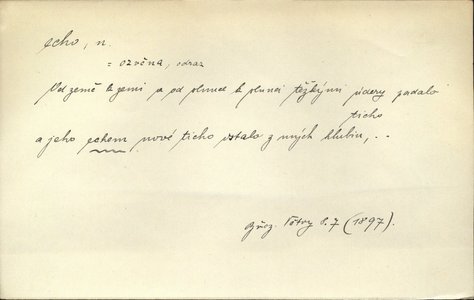 echo, n.
= ozvěna, odraz
Od země k zemi a od slunce k slunci těžkými údery padalo
ticho
a jeho echem nové ticho vstalo z mých hlubin, ..
Břez. Větry s. 7 (1897).